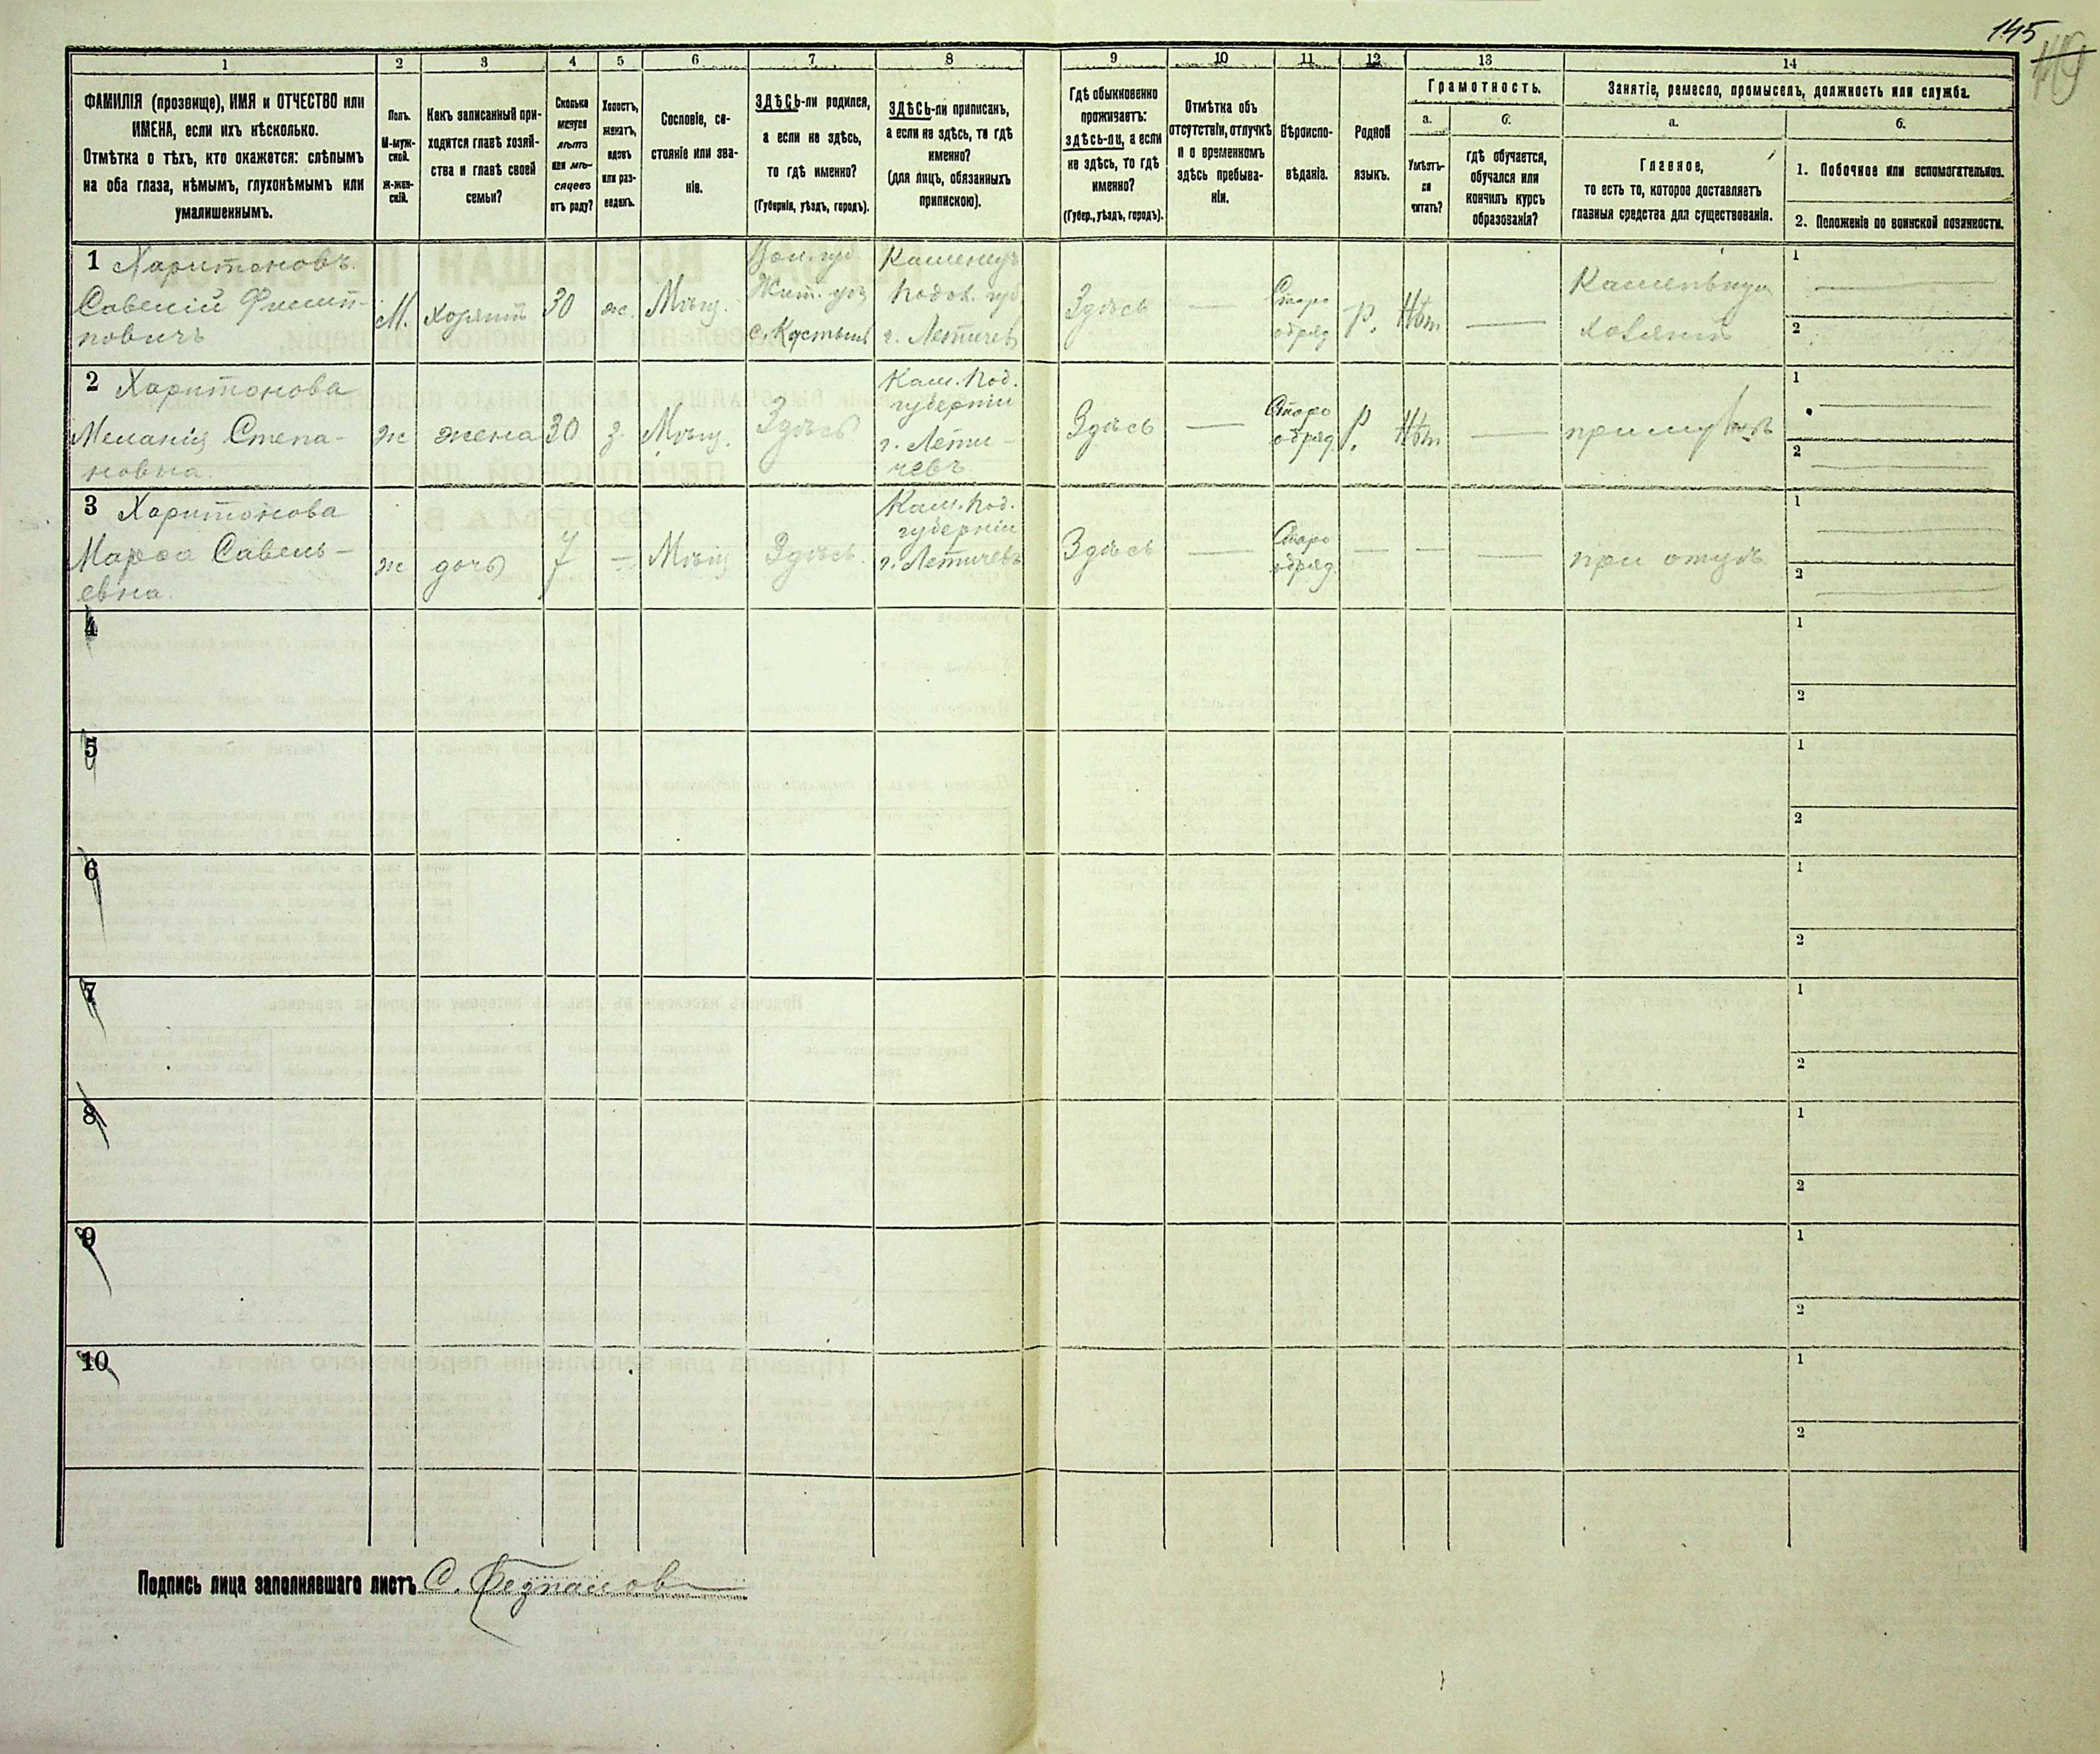 145
149
1
2
3
4
5
6
7
8
9
10
11
12
13
14
ФАМИЛІЯ (прозвище), ИМЯ и ОТЧЕСТВО или
ИМЕНА, если ихъ нѣсколько.
Отмѣтка о тѣхъ, кто окажется: слѣпымъ
на оба глаза, нѣмымъ, глухонѣмымъ или
умалишеннымъ.
Полъ.
М-муж-
ской.
ж-жен-
скій.
Какъ записанный при-
ходится главѣ хозяй-
ства и главѣ своей
семьи?
Сколько
минуло
лѣтъ
или мѣ-
сяцевъ
отъ роду?
Холостъ,
женатъ,
вдовъ
или раз-
веденъ.
Сословіе, со-
стояніе или зва-
ніе.
ЗДѢСЬ-ли родился,
а если не здѣсь,
то гдѣ именно?
(Губернія, уѣздъ, городъ).
ЗДѢСЬ-ли приписанъ,
а если не здѣсь, то гдѣ
именно?
(для лицъ, обязанныхъ
припискою).
Гдѣ обыкновенно
проживаетъ:
здѣсь-ли, а если
не здѣсь, то гдѣ
именно?
(Губер., уѣздъ, городъ).
Отмѣтка объ
отсутствіи, отлучкѣ
и о временномъ
здѣсь пребыва-
ніи.
Вѣроиспо-
вѣданіе.
Родной
языкъ.
Грамотность.
а.
Умѣетъ-
ли
читать?
б.
гдѣ обучается,
обучался или
кончилъ курсъ
образованія?
Занятіе, ремесло, промыселъ, должность или служба.
а.
Главное,
то есть то, которое доставляетъ
главныя средства для существованія.
б.
1. Побочное или вспомогательное.
2. Положеніе по воинской повинности.
1 Харитоновъ
Савелій Филип-
повичъ
М.
хозяинъ
30
ж.
Мѣщ.
Вол. губ.
Жит. уѣз.
Каменец
Подол. губ
г. Летичев
Здѣсь
—
Старо
обряд
р.
Нѣт
—
хозяинъ
1
2
2 Харитонова
Меланія Степа-
новна.
ж
жена
30
з.
Мѣщ.
Здѣсь
Кам. Под.
губерніи
г. Лети-
чевъ
Здѣсь
—
Старо
обряд.
р.
Нѣт
—
при мужѣ
1
2
3 Харитонова
Марѳа Савель-
евна.
ж
дочь
7
—
Мѣщ
Здѣсь
Кам. Под.
губерніи
г. Летичевъ
Здѣсь
—
Старо
обряд.
—
—
—
при отцѣ
1
2
4
1
2
5
1
2
6
1
2
7
1
2
8
1
2
9
1
2
10
1
2
Подпись лица заполнявшаго листъ С.